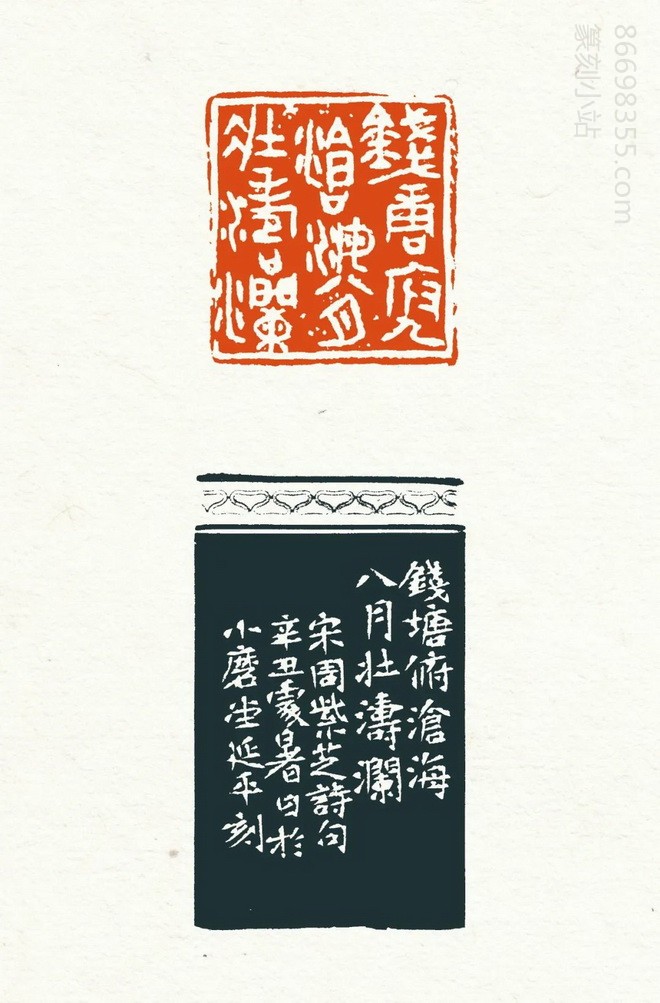 錢唐府
滄海八月
壯濤瀾
錢塘俯滄海
八月壯濤瀾
宋周紫芝詩句
辛丑處暑日於
小磨坐延平刻
86698355.com
篆刻小站